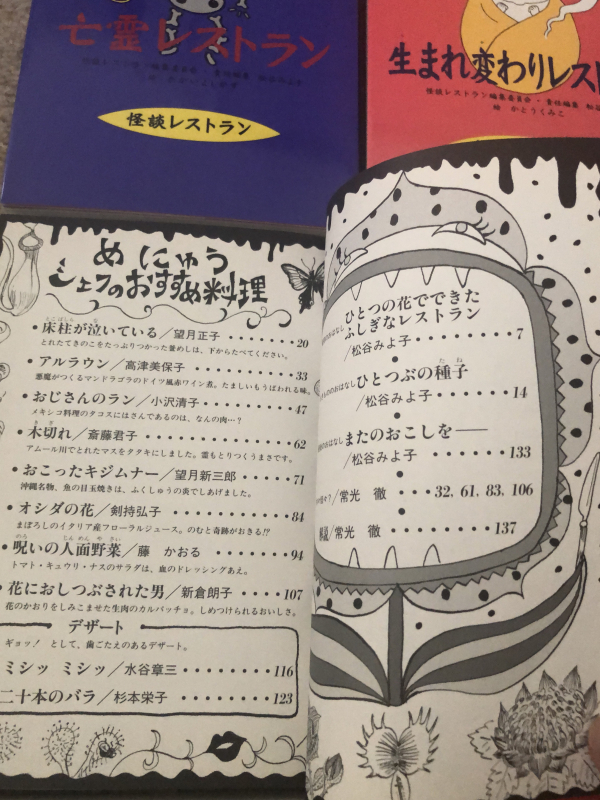 亡霊レストラン
怪談レストラン編集委員会・責任編集 松谷みよ子
怪談レストラン
生まれ変わりレス
怪談レストラン編集委員会・責任編集 松谷
絵 かとうくみこ
めにゅう
シェフのおすすめ料理
・床柱が泣いている/望月正子・・・・・・・・20
とれたてきのこをたっぷりつかった釜めしは、下からたべてください。
・アルラウン/高津美保子・・・・・・・・33
悪魔がつくるマンドラゴラのドイツ風赤ワイン煮。たましいもうばわれる味。
・おじさんのラン/小沢清子・・・・・・・・47
メキシコ料理のタコスにはさんであるのは、なんの肉…?
・木切れ/斎藤君子・・・・・・・・62
アムール川でとれたマスをタタキにしました。霊もとりつくうまさです。
・おこったキジムナー/望月新三郎・・・・・71
沖縄名物、魚の目玉焼きは、ふくしゅうの炎でしあげました。
・オシダの花/剣持弘子・・・・・・・・84
まぼろしのイタリア産フローラルジュース。のむと奇跡がおきる!?
・呪いの人面野菜/藤 かおる・・・・・・・94
トマト・キュウリ・ナスのサラダは、血のドレッシングあえ。
・花におしつぶされた男/新倉朗子・・・・・107
花のかおりをしみこませた生肉のカルパッチョ。しめつけられるおいしさ。
デザート
ギョッ! として、歯ごたえのあるデザート。
ミシッ ミシッ/水谷章三・・・・・・・・116
二十本のバラ/杉本栄子・・・・・・・・123
ひとつの花でできた
ふしぎなレストラン
/松谷みよ子・・・・・・・・7
ひとつぶの種子
/松谷みよ子・・・・・・・14
またのおこしを――
/松谷みよ子・・・・・・・133
/常光 徹・・・32, 61, 83, 106
解説/常光 徹・・・・・・・137